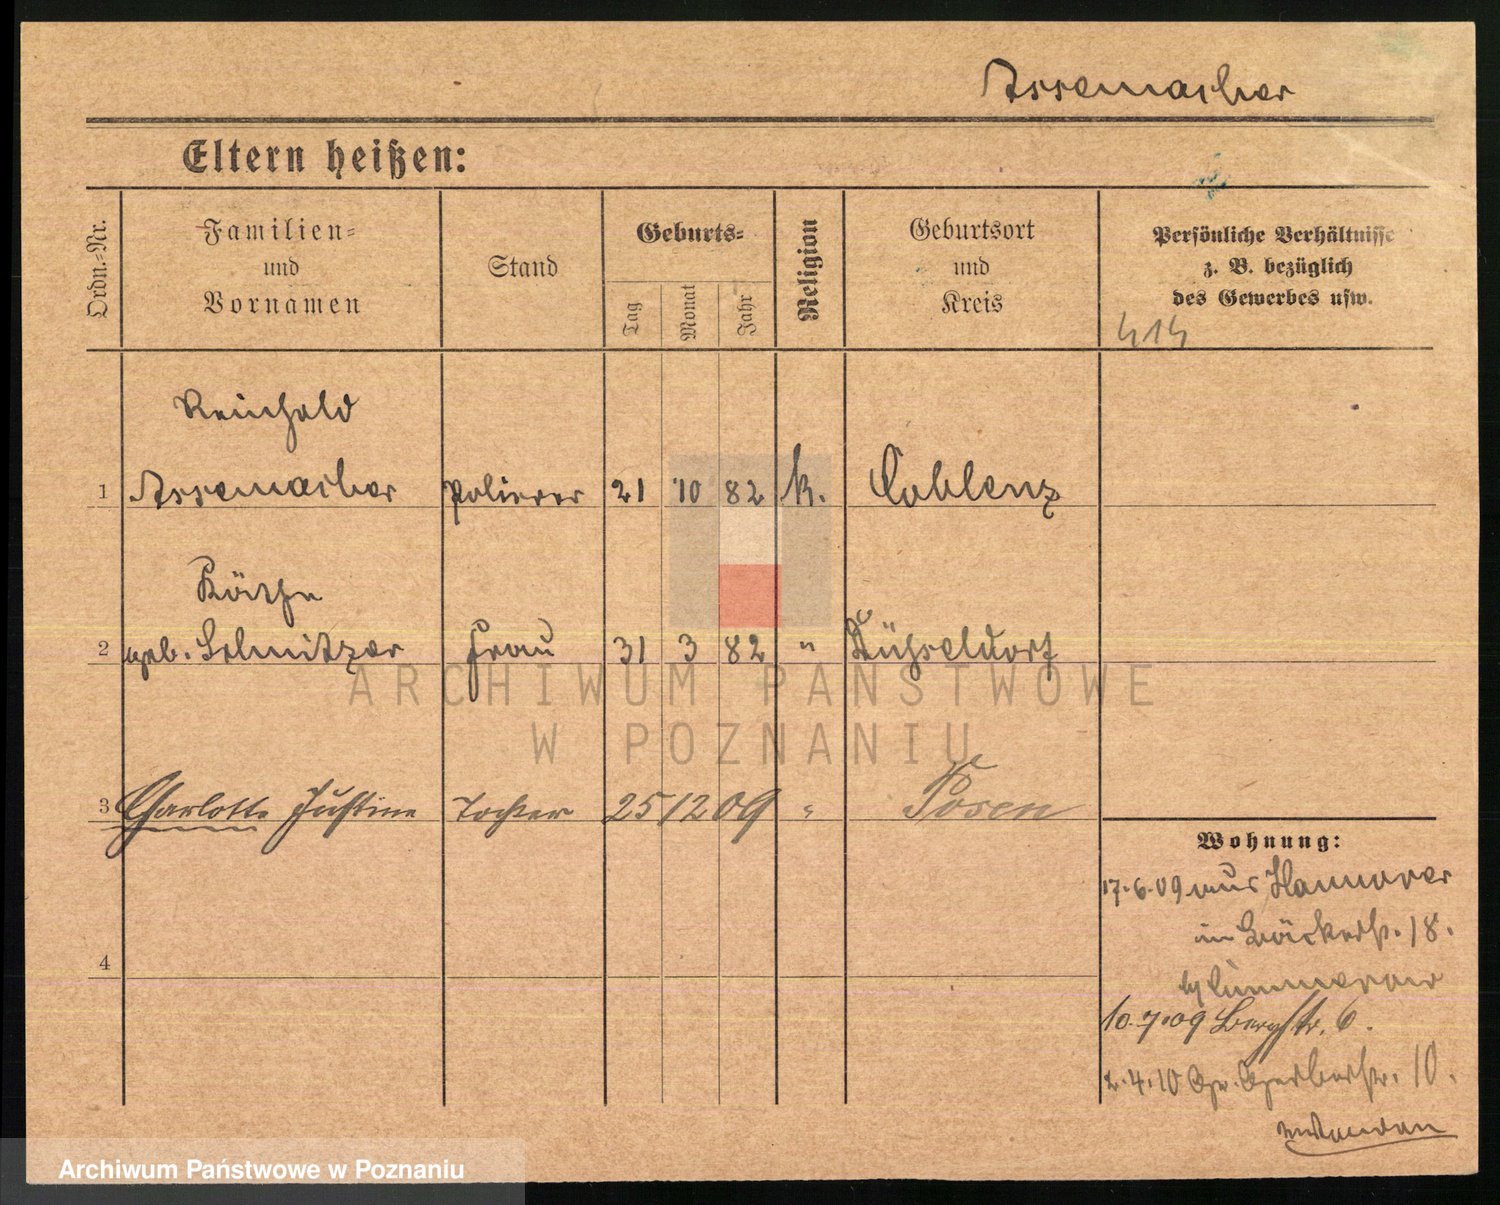 Assemacher
Eltern heißen:
Ordn.-Nr.
Familien-
und
Vornamen
Stand
Geburts-
Tag
Monat
Jahr
Religion
Geburtsort
und
Kreis
Persönliche Verhältnisse
z. B. bezüglich
des Gewerbes usw.
414
Reinhold
1 Assemacher Polierer 21 10 82 k. Coblenz
Käthe
2 geb. Schnitzer Frau 31 3 82 " Düsseldorf
3 Charlotte Justine Tochter 25 12 09 " Posen
Wohnung:
17.6.09 aus Hannover
in Bäckerstr. 18.
4
10.7.09 Bergstr. 6.
2.4.10 Gr. Gerberstr. 10.
ARCHIWUM PAŃSTWOWE
W POZNANIU
Archiwum Państwowe w Poznaniu